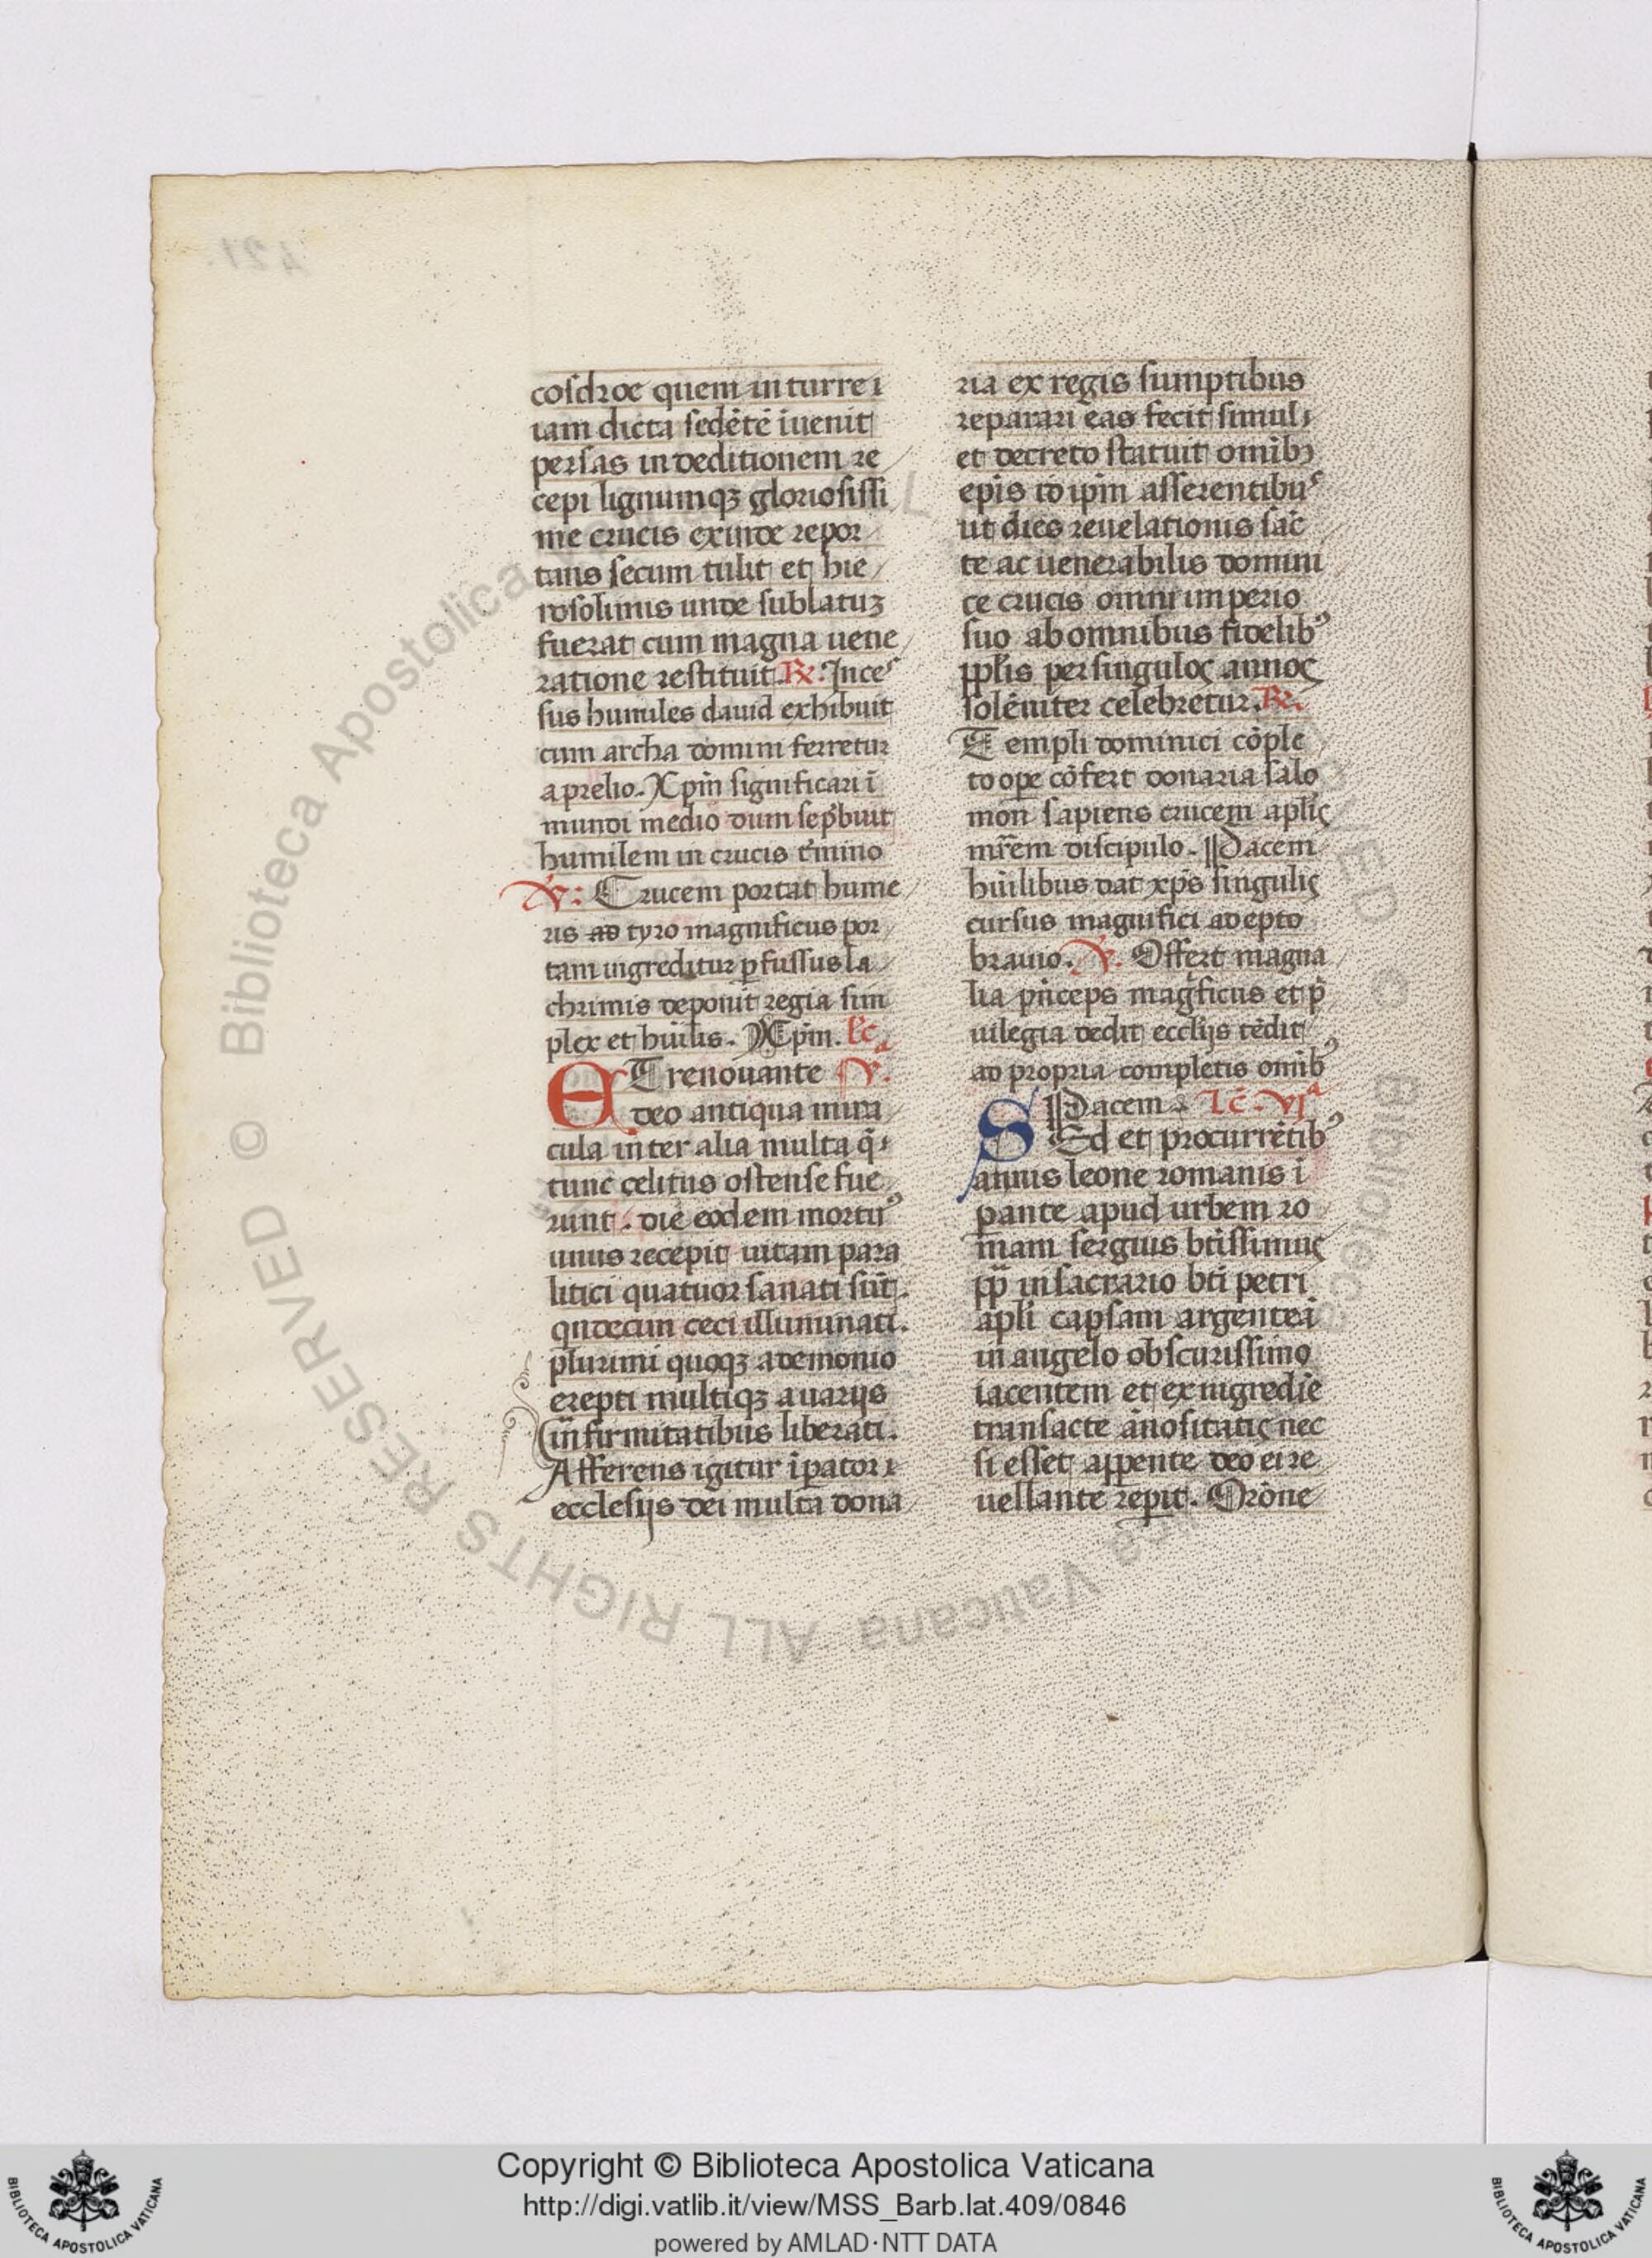 cosdroe quem in turre i
iam dicta sedētē īuenit
persas in deditionem re
cepi lignumqꝫ gloriosissi
me crucis exinde repor
tans secum tulit et hie
rosolimis unde sublatuꝫ
fuerat cum magna uene
ratione restituit. ℞. Inces
sus humiles dauid exhibuit
cum archa domini ferretur
a prelio. Xp̄m significari ī
mundi medio dum
humilem in crucis t̄mino
℣: Crucem portat hume
ris ad tyro magnificus por
tam ingreditur ꝑfussus la
chrimis deponit regia sim
plex et hūilis. Xp̄m. lc̄
ET renouante v.ª
deo antiqua mira
cula inter alia multa q̄
tunc celitus ostense fue
runt. die eodem mortuꝰ
unus recepit uitam para
litici quatuor sanati sūt.
qndecim ceci illuminati.
plurimi quoqꝫ a demonio
erepti multiqꝫ a uarijs
infirmitatibus liberati.
Afferens igitur īperator
ecclesijs dei multa dona
ria ex regis sumptibus
reparari eas fecit simul
et decreto statuit omibꝫ
ep̄is id ip̄m asserentibus
ut dies reuelationis sāc
te ac uenerabilis domini
ce crucis omni imperio
suo ab omnibus fidelibꝰ
pp̄lis per singulos annos
solēniter celebretur. ℞.
Templi dominici cōple
to ope cōfert donaria salo
mon sapiens crucem apl̄is
mr̄em discipulo. Pacem
hūilibus dat xp̄s singulis
cursus magnifici adepto
brauio. ℣. Offert magna
lia p̄nceps magficus et p̄
uilegia dedit eccl̄ijs rēdit
ad propria completis omibꝰ
Pacem. Lc̄. vjª
SEd et procurrētibꝰ
annis leone romanis ī
pante apud urbem ro
mam sergius bt̄issimus
pp̄ in sacrario bt̄i petri
apl̄i capsam argenteā
in angelo obscurissimo
iacentem et ex nigredīe
transacte ānositatis nec
si esset appente deo ei re
uellante repit. Orōne
Copyright © Biblioteca Apostolica Vaticana
http://digi.vatlib.it/view/MSS_Barb.lat.409/0846
powered by AMLAD·NTT DATA
BIBLIOTECA APOSTOLICA VATICANA
BIBLIOTECA APOSTOLICA VATICANA
© Biblioteca Apostolica Vaticana ALL RIGHTS RESERVED